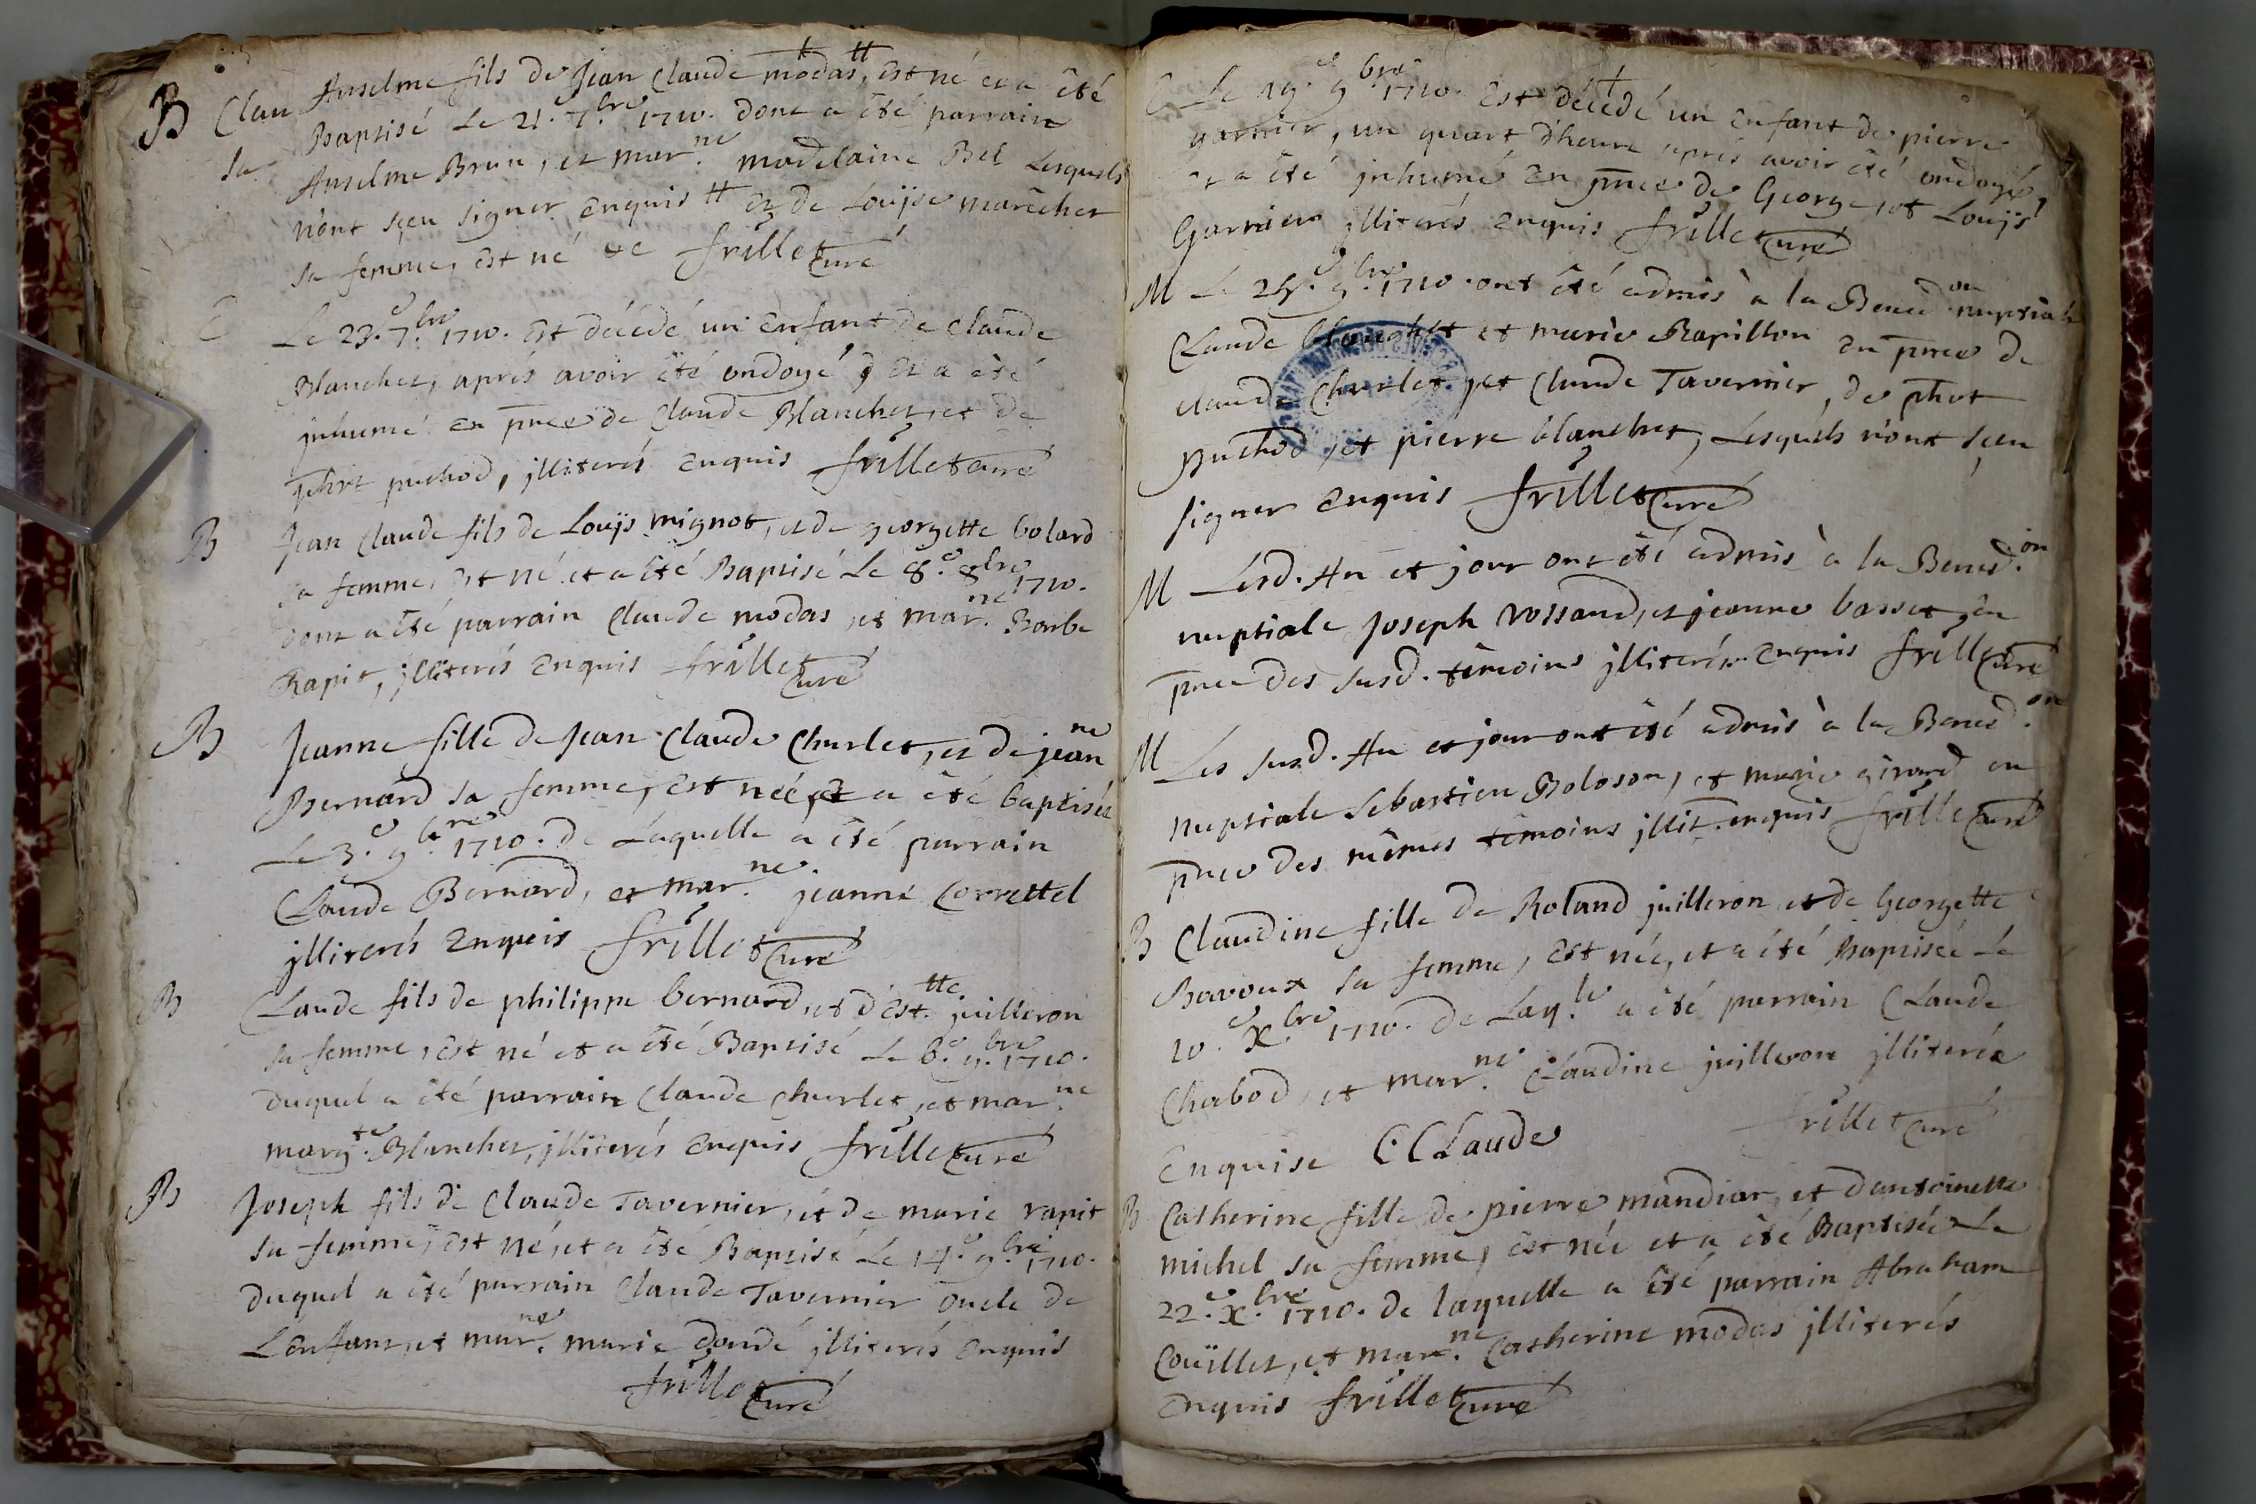 B Clau Anselme fils de Jean Claude modas tt, est né et a été
sa Baptisé Le 21.e 7.bre 1710. dont a été parrain
Anselme Brun, et mar.ne madelaine Bel Lesquels
n'ont sçeu signer enquis tt et de Louÿse marêcher
sa femme, est né frillet Curé
E Le 23.e 7.bre 1710. est décédé un enfant de claude
Blanchet, aprés avoir été ondoyé, et a été
jnhumé en pnce de Claude Blanchet, et de
puchod, jlliterés enquis frillet curé
B Jean Claude fils de Louÿs mignot, et de georgette bolard
sa femme, est né et a été Baptisé Le 8.e 8.bre 1710.
dont a été parrain Claude modas, et mar.ne Barbe
Rapit, jlliterés enquis frillet Curé
B Jeanne fille de Jean Claude Churlet, et de jean.ne
Bernard sa femme, est née, et a été baptisée
Le 3.e 9.bre 1710. de Laquelle a été parrain
Claude Bernard, et mar.ne jeanne Correttel
jlliterés enquis frillet Curé
B Claude fils de philippe bernard, et d'Est.tte juilleron
sa femme, est né et a été Baptisé Le 6.e 9.bre 1710.
duquel a été parrain Claude Churlet, et mar.ne
marg.te Blanchet, jlliterés enquis frillet Curé
B Joseph fils de Claude Tavernier, et de marie rapit
sa femme, est né, et a été Baptisé Le 14.e 9.bre 1710.
duquel a été parrain Claude Tavernier oncle de
L'enfant, et mar.ne marie doudé jlliterés enquis
frillet Curé
E Le 19.e 9.bre 1710. est décédé un enfant de pierre
garnier, un quart d'heure aprés avoir été ondoyé,
et a été jnhumé en pnce de George, et Louÿs
Garnier jlliterés enquis frillet Curé
M Le 24.e 9.bre 1710. ont été admis à la Bened.on nuptiale
Claude blanchet et marie Rapillon en pnce de
claude Churlet, et Claude Tavernier, de
puchod, et pierre blanchet, Lesquels n'ont sçeu
signer enquis frillet Curé
M Lesd. An et jour ont été admis à la Bened.on
nuptiale Joseph Vossand, et jeanne basset, en
pnce des susd. témoins jlliterés enquis frillet Curé
M Les susd. An et jour ont été admis à la Bened.on
nuptiale Sebastien Boloson, et marie girard en
pnce des mêmes témoins jllit. enquis frillet Curé
B Claudine fille de Roland juilleron, et de Georgette
Bavoux sa femme, est née, et a été Baptisée Le
10.e X.bre 1710. de Laq.le a été parrain Claude
Chabod, et mar.ne Claudine juilleron jlliterée
enquise C CLaude frillet Curé
B Catherine fille de pierre mandiar, et d'antoinette
michel sa femme, est née et a été Baptisée Le
22.e X.bre 1710. de laquelle a été parrain Abraham
Coüillet, et mar.ne Catherine modas jlliterés
enquis frillet Curé